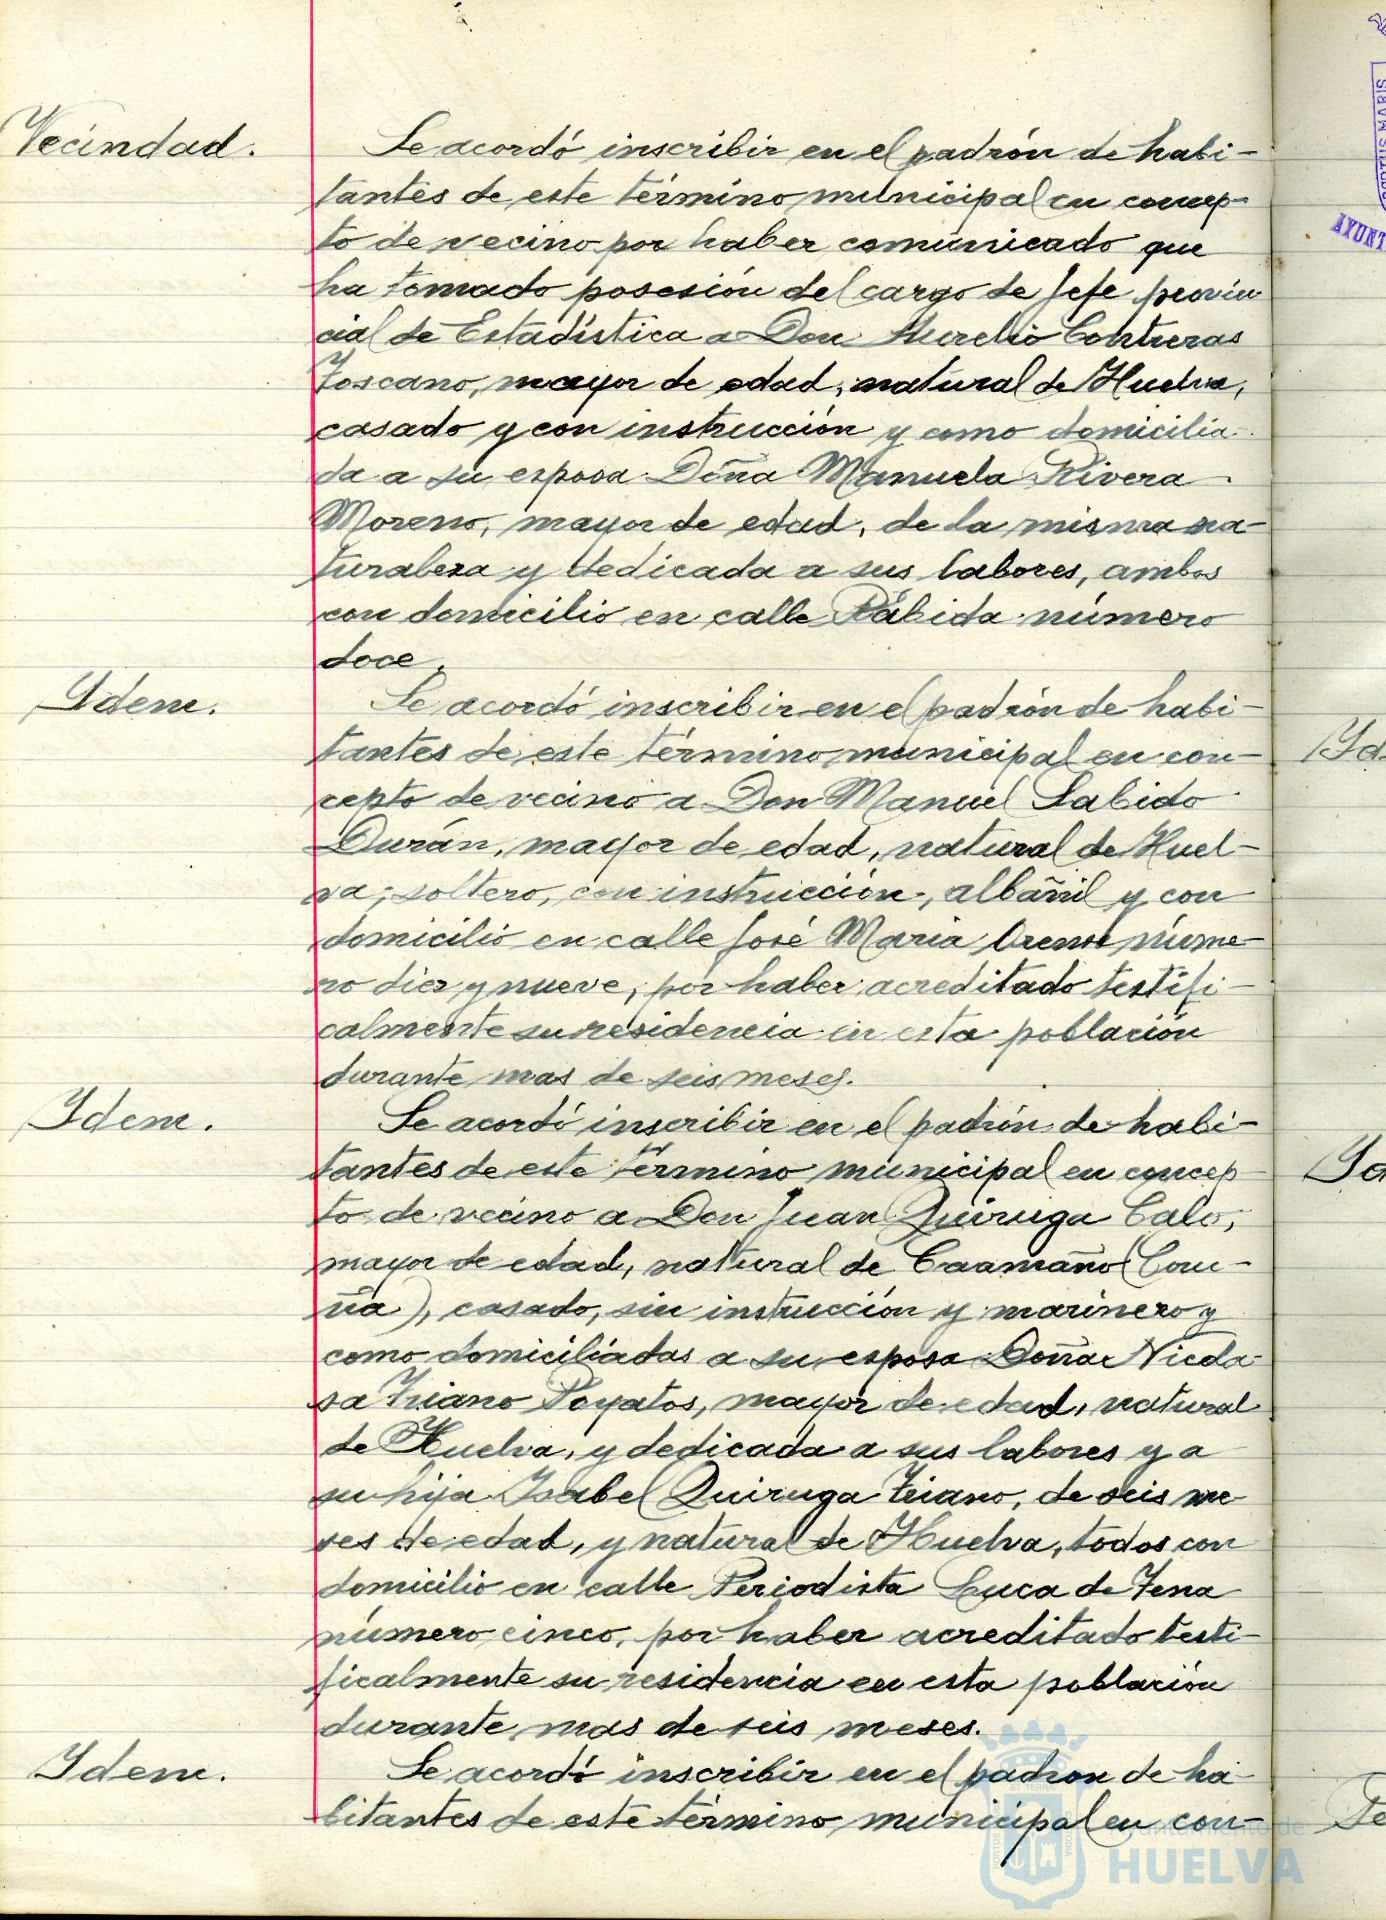 Vecindad.
Se acordó inscribir en el padrón de habi-
tantes de este término municipal en concep-
to de vecino por haber comunicado que
ha tomado posesión del cargo de Jefe provin
cial de Estadística a Don Aurelio Contreras
Toscano, mayor de edad, natural de Huelva,
casado y con instrucción y como domicilia-
da a su esposa Doña Manuela Rivera
Moreno, mayor de edad, de la misma na-
turaleza y dedicada a sus labores, ambos
con domicilio en calle Rábida número
doce.
Ydem.
Se acordó inscribir en el padrón de habi-
tantes de este término municipal en con-
cepto de vecino a Don Manuel Sabido
Durán, mayor de edad, natural de Huel-
va, soltero, con instrucción, albañil y con
domicilio en calle José Maria Orense núme-
ro diez y nueve, por haber acreditado testifi-
calmente su residencia en esta población
durante mas de seis meses.
Ydem.
Se acordó inscribir en el padrón de habi-
tantes de este término municipal en concep
to de vecino a Don Juan Quiruga Calo,
mayor de edad, natural de Caamaño (Coru-
ña), casado, sin instrucción y marinero y
como domiciliadas a su esposa Doña Nicola-
sa Triano Poyatos, mayor de edad, natural
de Huelva, y dedicada a sus labores y a
su hija Isabel Quiruga Triano, de seis me
ses de edad, y natural de Huelva, todos con
domicilio en calle Periodista Luca de Tena
número cinco, por haber acreditado testi-
ficalmente su residencia en esta población
durante mas de seis meses.
Ydem.
Se acordó inscribir en el padron de ha-
bitantes de este término municipal en con-
Ayuntamiento de
HUELVA